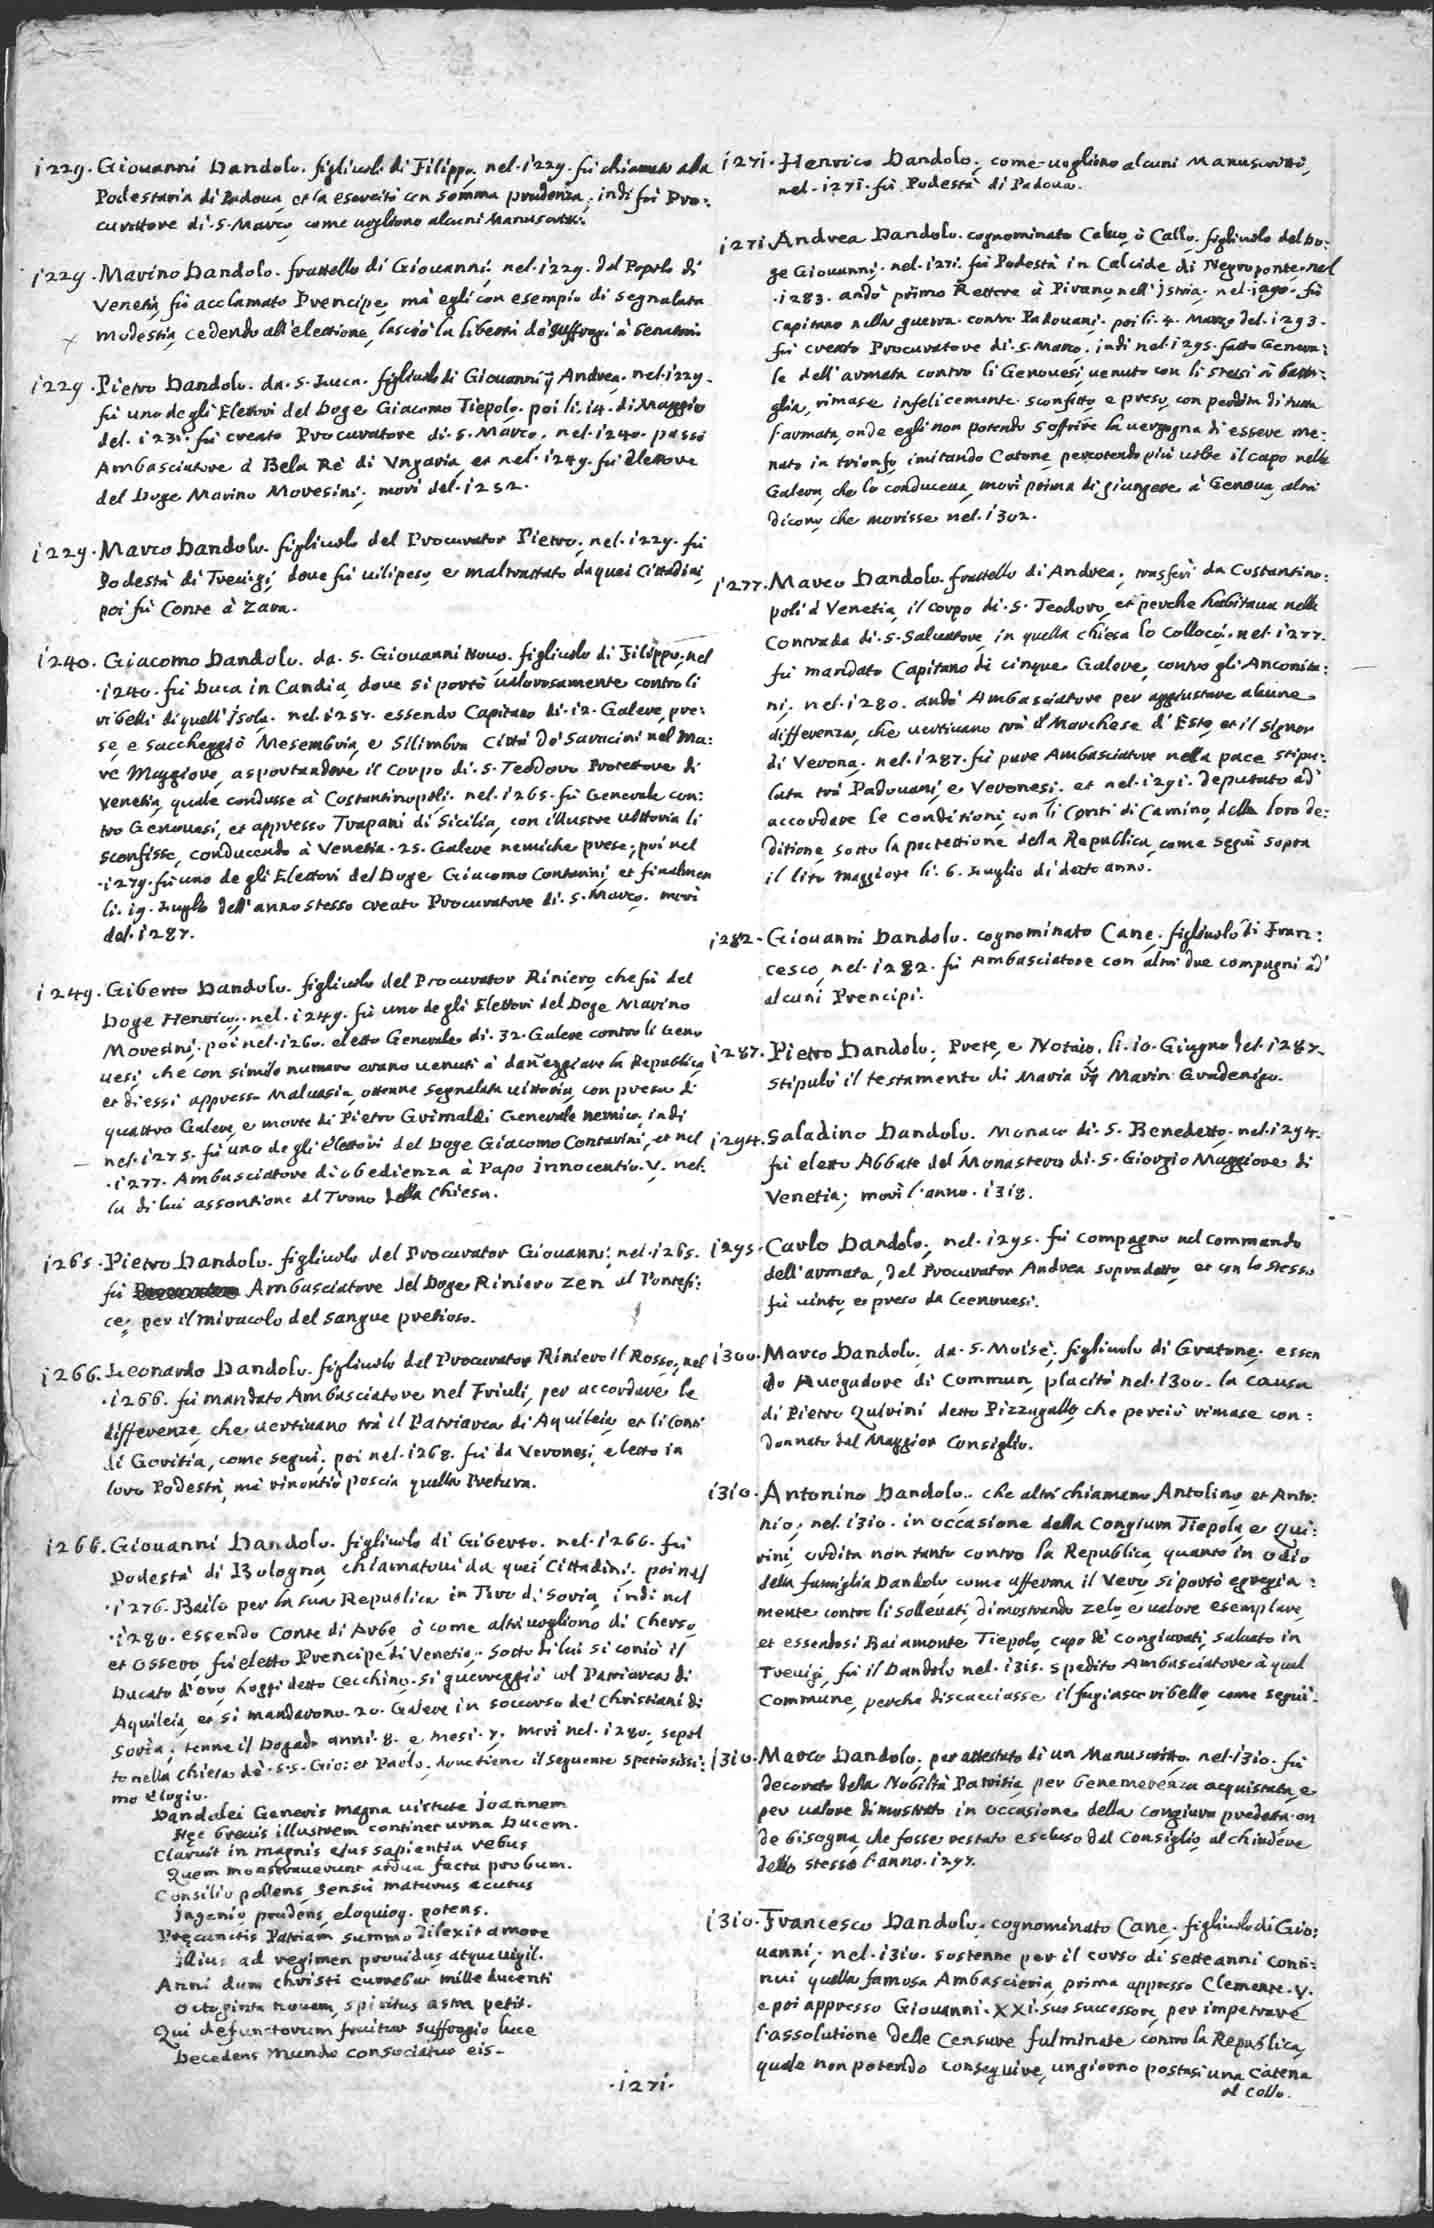 1229. Giouanni Dandolo. figliuolo di Filippo, nel. 1229. fù chiamato alla
Podestaria di Padoua, et la esercitò con somma prudenza, indi fù Pro:
curattore di. S. Marco, come uogliono alcuni Manuscritti.
1229. Marino Dandolo. frattello di Giouanni; nel. 1229. dal Popolo di
Venetia, fù acclamato Prencipe, mà egli con esempio di segnalata
modestia, cedendo all'elettione, lasciò la libertà de suffragi à Senatori
1229. Pietro Dandolo. da. S. Luca. figliuolo di Giouanni q Andrea. nel. 1229.
fù uno degli Elettori del Doge Giacomo Tiepolo. poi li. 14. di Maggio
del. 1231. fù creato Procuratore di. S. Marco, nel. 1240. passò
Ambasciatore à Bela Rè di Vngaria, et nel. 1249. fù Elettore
del Doge Marino Moresini; morì del. 1252.
1229. Marco Dandolo. figliuolo del Procurator Pietro; nel. 1229. fù
Podestà di Treuigi, doue fù uilipeso, e maltrattato da quei Cittadini,
poi fù Conte à Zara.
1240. Giacomo Dandolo. da. S. Giouanni Nouo. figliuolo di Filippo, nel
.1240. fù Duca in Candia, doue si portò ualorosamente contro li
ribelli di quell'Isola. nel. 1257. essendo Capitano di. 12. Galere, pre:
se, e saccheggiò Mesembria, e Silimbra Città de' Saracini nel Ma:
re Maggiore, asportandone il Corpo di. S. Teodoro Protettore di
Venetia, quale condusse à Costantinopoli. nel. 1265. fù Generale con:
tro Genouesi, et appresso Trapani di Sicilia, con illustre uittoria li
sconfisse, conducendo à Venetia. 25. Galere nemiche prese; poi nel
.1279. fù uno de gli Elettori del Doge Giacomo Contarini, et finalmen
li. 19. Luglio dell'anno stesso creato Procuratore di. S. Marco. morì
del. 1287.
1249. Giberto Dandolo. figliuolo del Procurator Riniero, che fù del
Doge Henrico; nel. 1249. fù uno de gli Elettori del Doge Marino
Moresini. poi nel. 1260. eletto Generale di. 32. Galere contro li Geno
uesi, che con simile numero erano uenuti à danneggiare la Republica,
et di essi appresso Maluasia, ottenne segnalata uittoria, con presa di
quattro Galere, e morte di Pietro Grimaldi Generale nemico, indi
nel. 1275. fù uno de gli Elettori del Doge Giacomo Contarini, et nel
.1277. Ambasciatore di obedienza à Papa Innocentio. V. nel:
la di lui assontione al Trono della Chiesa.
1265. Pietro Dandolo. figliuolo del Procurator Giouanni; nel. 1265.
fù Ambasciatore del Doge Riniero Zen al Pontefi:
ce, per il miracolo del sangue pretioso.
1266. Leonardo Dandolo. figliuolo del Procurator Riniero il Rosso, nel
.1266. fù mandato Ambasciatore nel Friuli, per accordare le
differenze, che uertiuano trà il Patriarca di Aquileia, et li Conti
di Goritia, come seguì; poi nel. 1268. fù da Veronesi, eletto in
loro Podestà, mà rinontiò poscia quella Pretura.
1266. Giouanni Dandolo. figliuolo di Giberto. nel. 1266. fù
Podestà di Bologna, chiamatoui da quei Cittadini. poi nel
.1276. Bailo per la sua Republica in Tiro di Soria, indi nel
.1280. essendo Conte di Arbe, ò come altri uogliono di Cherso,
et Ossero, fù eletto Prencipe di Venetia. Sotto di lui si coniò il
Ducato d'oro, hoggi detto Cecchino. si guerreggiò col Patriarca di
Aquileia, et si mandarono. 20. Galere in soccorso de' Christiani di
Soria; tenne il Dogado anni. 8. e mesi. 7. morì nel. 1280. sepol
to nella Chiesa de'. S.S. Gio: et Paolo, doue tiene il seguente spetiosissi:
mo elogio.
Dandolei Generis magna uirtute Joannem
Hęc breuis illustrem continet urna Ducem.
Claruit in magnis eius sapientia rebus
Quem monstrauerunt ardua facta probum.
Consilio pollens, sensu maturus acutus
Ingenio prudens, eloquioq. potens.
Pręcunctis Patriam summo dilexit amore
Illius ad regimen prouidus atque uigil.
Anni dum Christi currebant mille ducenti
Octoginta nouem, spiritus astra petit.
Qui defunctorum fruitur suffragio luce
Decedens Mundo consociatur eis.
.1271.
1271. Henrico Dandolo, come uogliono alcuni Manuscritti,
nel. 1271. fù Podestà di Padoua.
1271. Andrea Dandolo. cognominato Caluo, ò Callo. figliuolo del Do:
ge Giouanni. nel. 1271. fù Podestà in Calcide di Negroponte, nel
.1283. andò primo Rettore à Pirano, nell'Istria, nel. 1290. fù
Capitano nella guerra. contro Padouani. poi li. 4. Marzo del. 1293.
fù creato Procuratore di. S. Marco, indi nel. 1295. fatto Genera:
le dell'armata contro li Genouesi, uenuto con li stessi à batta:
glia, rimase infelicemente sconfitto, e preso, con perdita di tutta
l'armata, onde egli non potendo soffrire la uergogna di essere me:
nato in trionfo, imitando Catone, percotendo più uolte il capo nella
Galera, che lo conduceua, morì prima di giungere à Genoua, altri
dicono, che morisse nel. 1302.
1277. Marco Dandolo. frattello di Andrea; trasferì da Costantino:
poli à Venetia, il corpo di. S. Teodoro, et perche habitaua nella
Contrada di. S. Saluatore, in quella chiesa lo collocò. nel. 1277.
fù mandato Capitano di cinque Galere, contro gli Anconita:
ni. nel. 1280. andò Ambasciatore per aggiustare alcune
differenze, che uertiuano trà il Marchese d'Este, et il Signor
di Verona. nel. 1287. fù pure Ambasciatore nella pace stipu:
lata trà Padouani, e Veronesi. et nel. 1291. deputato ad
accordare le conditioni, con li Conti di Camino, della loro de:
ditione, sotto la protettione della Republica, come seguì sopra
il lito maggiore li. 6. Luglio di detto anno.
1282. Giouanni Dandolo. cognominato Cane. figliuolo di Fran:
cesco, nel. 1282. fù Ambasciatore con altri due compagni ad
alcuni Prencipi.
1287. Pietro Dandolo; Prete, e Notaio. li. 10. Giugno del. 1287.
stipulò il testamento di Maria Marin Gradenigo.
1294. Saladino Dandolo. Monaco di. S. Benedetto. nel. 1294.
fù eletto Abbate del Monastero di. S. Giorgio Maggiore di
Venetia; morì l'anno. 1318.
1295. Carlo Dandolo; nel. 1295. fù compagno nel commando
dell'armata, del Procurator Andrea sopradetto, et con lo stesso
fù uinto, e preso da Genouesi.
1300. Marco Dandolo. da. S. Moisè; figliuolo di Gratone; essen
do Auogadore di Commun, placitò nel. 1300. la causa
di Pietro Quirini detto Pizzagallo, che perciò rimase con:
donnato dal Maggior Consiglio.
1310. Antonino Dandolo.. che altri chiamano Antolino, et Anto:
nio; nel. 1310. in occasione della Congiura Tiepola, e Qui:
rini, ordita non tanto contro la Republica, quanto in odio
della famiglia Dandolo come afferma il Vero, si portò egregia:
mente contro li solleuati, dimostrando zelo, e ualore esemplare,
et essendosi Baiamonte Tiepolo, capo de' congiurati, saluato in
Treuigi, fù il Dandolo nel. 1315. spedito Ambasciatore à quel
Commune, perche discacciasse il fugiasco ribelle, come seguì.
1310. Marco Dandolo; per attestato di un Manuscritto. nel. 1310. fù
decorato della Nobiltà Patritia, per benemerenza acquistata, e
per ualore dimostrato in occasione della congiura predetta. on
de bisogna, che fosse restato escluso dal Consiglio, al chiudere
dello stesso l'anno. 1297.
1310. Francesco Dandolo. cognominato Cane. figliuolo di Gio:
uanni; nel. 1310. sostenne per il corso di sette anni conti:
nui quella famosa Ambascieria, prima appresso Clemente. V.
e poi appresso Giouanni. XXI. suo successore, per impetrare
l'assolutione delle Censure fulminate contro la Republica,
quale non potendo conseguire, un giorno postasi una Catena
al Collo.